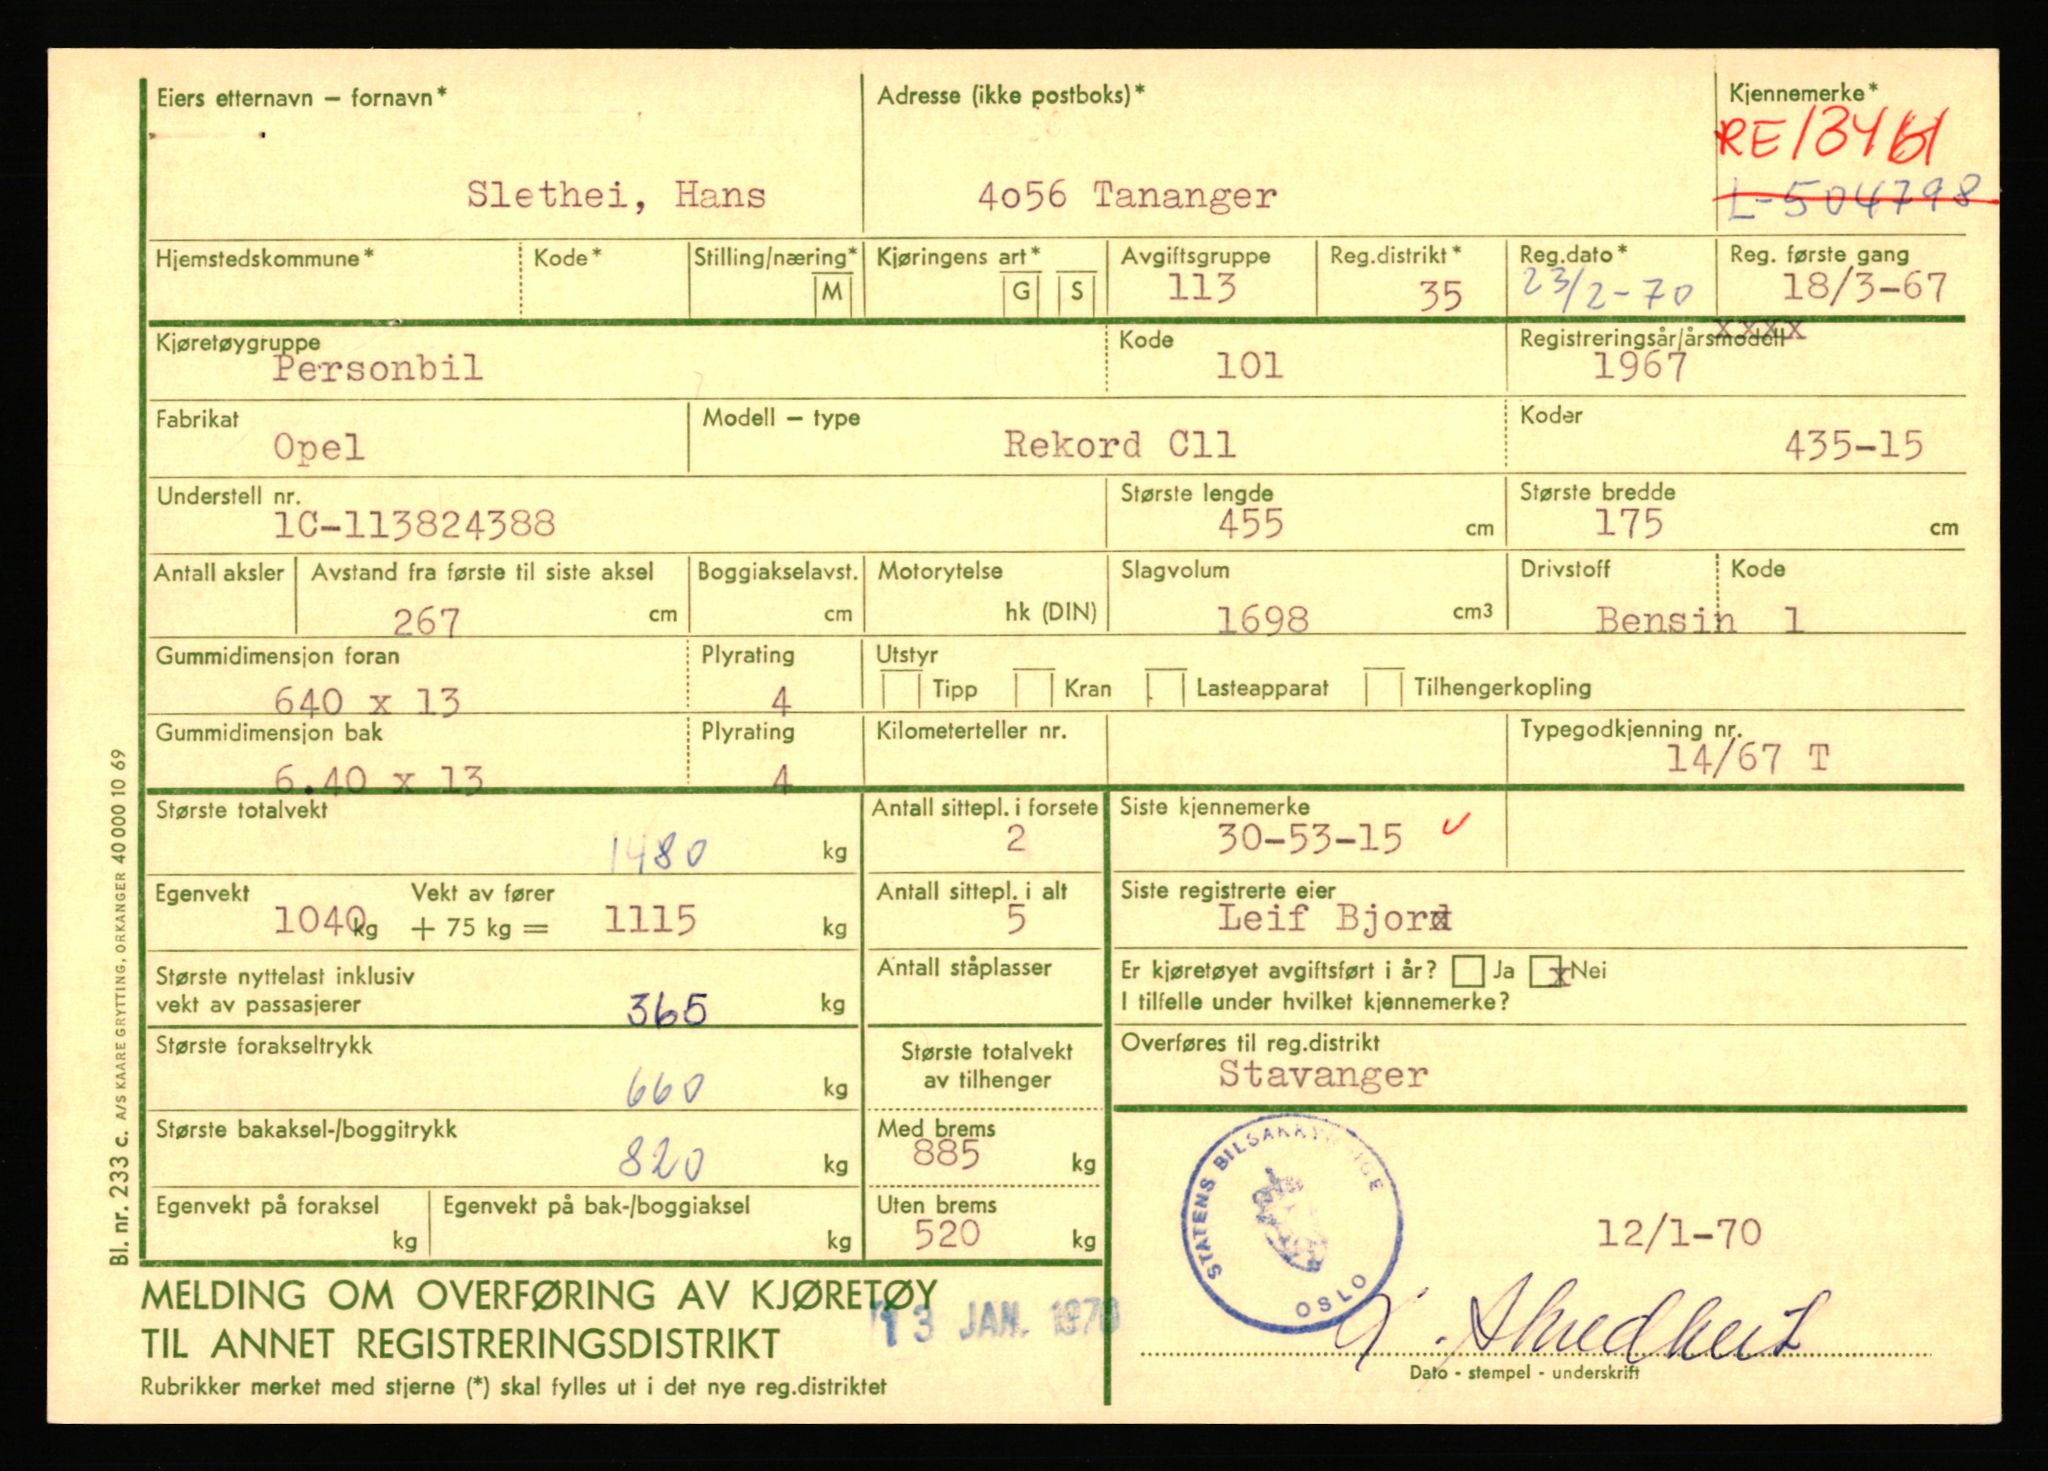 Eiers etternavn – fornavn*
Slethei, Hans
Adresse (ikke postboks)*
4o56 Tananger
Kjennemerke*
L-504798
Hjemstedskommune*
Kode*
Stilling/næring*
M
Kjøringens art*
G S
Avgiftsgruppe
113
Reg.distrikt*
35
Reg.dato*
23/2-70
Reg. første gang
18/3-67
Kjøretøygruppe
Personbil
Kode
101
Registreringsår/årsmodell
xxxx
1967
Fabrikat
Opel
Modell – type
Rekord C11
Koder
435-15
Understell nr.
1C-113824388
Største lengde
455 cm
Største bredde
175 cm
Antall aksler
Avstand fra første til siste aksel
267 cm
Boggiakselavst.
cm
Motorytelse
hk (DIN)
Slagvolum
1698 cm3
Drivstoff
Bensin
Kode
1
Gummidimensjon foran
640 x 13
Plyrating
4
Utstyr
Tipp Kran Lasteapparat Tilhengerkopling
Gummidimensjon bak
6.40 x 13
Plyrating
4
Kilometerteller nr.
Typegodkjenning nr.
14/67 T
Største totalvekt
1480 kg
Antall sittepl. i forsete
2
Siste kjennemerke
30-53-15
Egenvekt
1040 kg
Vekt av fører
+ 75 kg = 1115 kg
Antall sittepl. i alt
5
Siste registrerte eier
Leif Bjord
Største nyttelast inklusiv
vekt av passasjerer
365 kg
Antall ståplasser
Er kjøretøyet avgiftsført i år? Ja x Nei
I tilfelle under hvilket kjennemerke?
Største forakseltrykk
660 kg
Største totalvekt
av tilhenger
Overføres til reg.distrikt
Stavanger
Største bakaksel-/boggitrykk
820 kg
Med brems
885 kg
Egenvekt på foraksel
kg
Egenvekt på bak-/boggiaksel
kg
Uten brems
520 kg
STATENS BILSAKKYNDIGE
OSLO
12/1-70
Dato - stempel - underskrift
MELDING OM OVERFØRING AV KJØRETØY
TIL ANNET REGISTRERINGSDISTRIKT
13 JAN. 1970
Rubrikker merket med stjerne (*) skal fylles ut i det nye reg.distriktet
Bl. nr. 233 c. A/S KAARE GRYTTING, ORKANGER 40 000 10 69